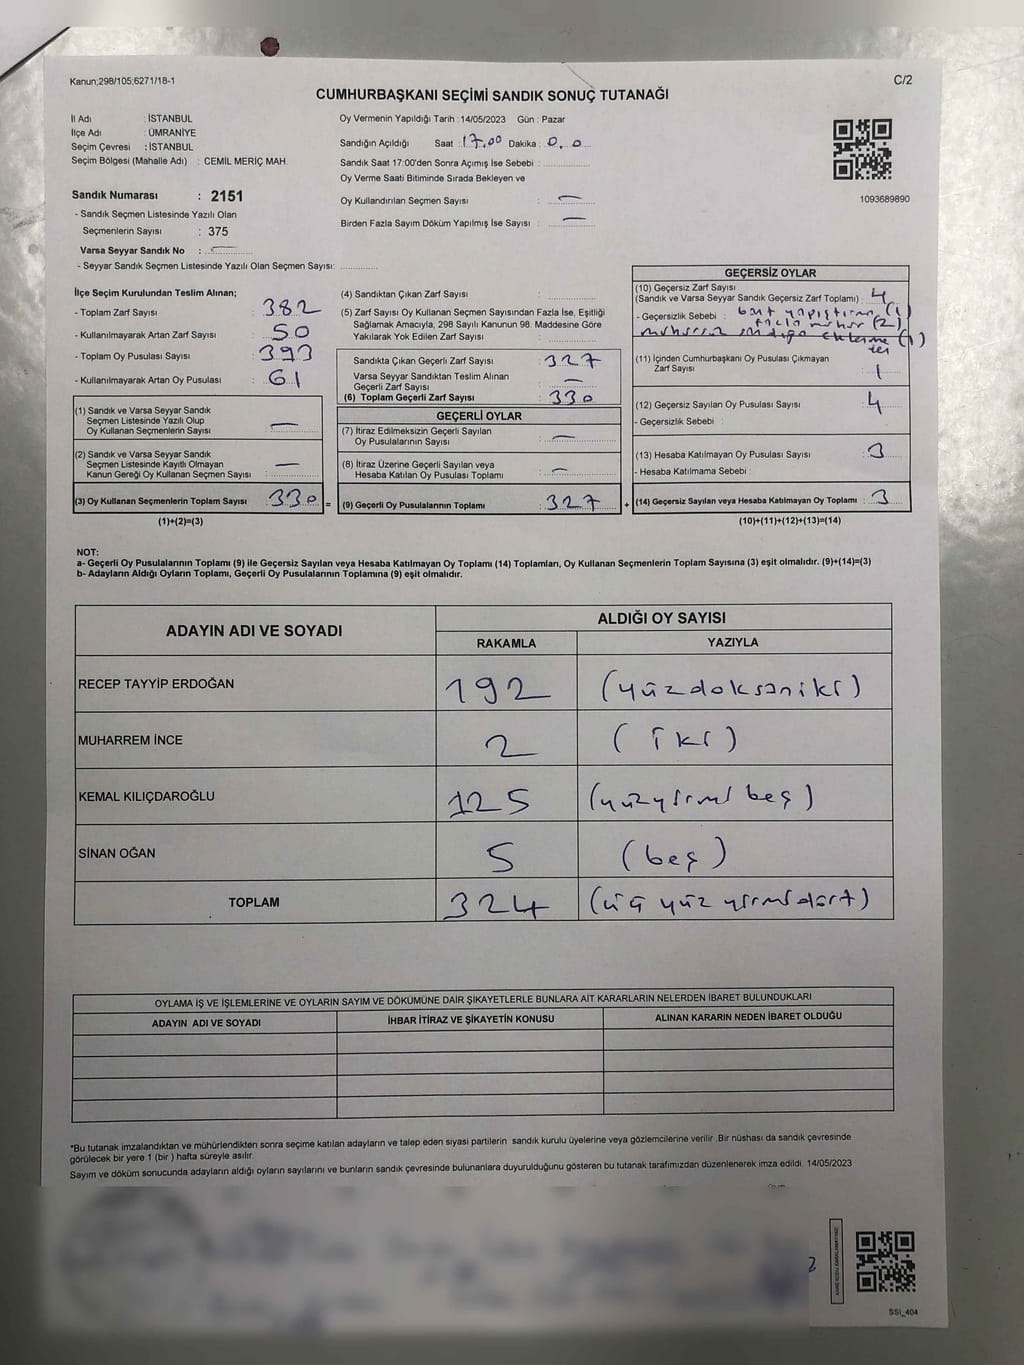 Kanun;298/105;6271/18-1
C/2
CUMHURBAŞKANI SEÇİMİ SANDIK SONUÇ TUTANAĞI
İl Adı : İSTANBUL
İlçe Adı : ÜMRANİYE
Seçim Çevresi : İSTANBUL
Seçim Bölgesi (Mahalle Adı) : CEMİL MERİÇ MAH.
Sandık Numarası : 2151
- Sandık Seçmen Listesinde Yazılı Olan
Seçmenlerin Sayısı : 375
Varsa Seyyar Sandık No : —
- Seyyar Sandık Seçmen Listesinde Yazılı Olan Seçmen Sayısı:
Oy Vermenin Yapıldığı Tarih : 14/05/2023 Gün : Pazar
Sandığın Açıldığı Saat : 17.00 Dakika : 0.0
Sandık Saat 17:00'den Sonra Açımış İse Sebebi :
Oy Verme Saati Bitiminde Sırada Bekleyen ve
Oy Kullandırılan Seçmen Sayısı : —
Birden Fazla Sayım Döküm Yapılmış İse Sayısı : —
1093689890
İlçe Seçim Kurulundan Teslim Alınan;
- Toplam Zarf Sayısı : 382
- Kullanılmayarak Artan Zarf Sayısı : 50
- Toplam Oy Pusulası Sayısı : 393
- Kullanılmayarak Artan Oy Pusulası : 61
(1) Sandık ve Varsa Seyyar Sandık
Seçmen Listesinde Yazılı Olup
Oy Kullanan Seçmenlerin Sayısı : —
(2) Sandık ve Varsa Seyyar Sandık
Seçmen Listesinde Kayıtlı Olmayan
Kanun Gereği Oy Kullanan Seçmen Sayısı : —
(3) Oy Kullanan Seçmenlerin Toplam Sayısı : 330 =
(1)+(2)=(3)
(4) Sandıktan Çıkan Zarf Sayısı :
(5) Zarf Sayısı Oy Kullanan Seçmen Sayısından Fazla İse, Eşitliği
Sağlamak Amacıyla, 298 Sayılı Kanunun 98. Maddesine Göre
Yakılarak Yok Edilen Zarf Sayısı :
Sandıkta Çıkan Geçerli Zarf Sayısı : 327
Varsa Seyyar Sandıktan Teslim Alınan
Geçerli Zarf Sayısı : —
(6) Toplam Geçerli Zarf Sayısı : 330
GEÇERLİ OYLAR
(7) İtiraz Edilmeksizin Geçerli Sayılan
Oy Pusulalarının Sayısı : —
(8) İtiraz Üzerine Geçerli Sayılan veya
Hesaba Katılan Oy Pusulası Toplamı : —
(9) Geçerli Oy Pusulalarının Toplamı : 327 +
GEÇERSİZ OYLAR
(10) Geçersiz Zarf Sayısı
(Sandık ve Varsa Seyyar Sandık Geçersiz Zarf Toplamı) : 4
- Geçersizlik Sebebi : bant yapıştırma (1)
fazla mühür (2)
(1)
(11) İçinden Cumhurbaşkanı Oy Pusulası Çıkmayan
Zarf Sayısı : 1
(12) Geçersiz Sayılan Oy Pusulası Sayısı : 4
- Geçersizlik Sebebi :
(13) Hesaba Katılmayan Oy Pusulası Sayısı : 3
- Hesaba Katılmama Sebebi :
(14) Geçersiz Sayılan veya Hesaba Katılmayan Oy Toplamı : 3
(10)+(11)+(12)+(13)=(14)
NOT:
a- Geçerli Oy Pusulalarının Toplamı (9) ile Geçersiz Sayılan veya Hesaba Katılmayan Oy Toplamı (14) Toplamları, Oy Kullanan Seçmenlerin Toplam Sayısına (3) eşit olmalıdır. (9)+(14)=(3)
b- Adayların Aldığı Oyların Toplamı, Geçerli Oy Pusulalarının Toplamına (9) eşit olmalıdır.
ADAYIN ADI VE SOYADI
ALDIĞI OY SAYISI
RAKAMLA YAZIYLA
RECEP TAYYİP ERDOĞAN 192 (yüzdoksaniki)
MUHARREM İNCE 2 (iki)
KEMAL KILIÇDAROĞLU 125 (yüzyirmi beş)
SİNAN OĞAN 5 (beş)
TOPLAM 324 (üç yüz yirmidört)
OYLAMA İŞ VE İŞLEMLERİNE VE OYLARIN SAYIM VE DÖKÜMÜNE DAİR ŞİKAYETLERLE BUNLARA AİT KARARLARIN NELERDEN İBARET BULUNDUKLARI
ADAYIN ADI VE SOYADI İHBAR İTİRAZ VE ŞİKAYETİN KONUSU ALINAN KARARIN NEDEN İBARET OLDUĞU
*Bu tutanak imzalandıktan ve mühürlendikten sonra seçime katılan adayların ve talep eden siyasi partilerin sandık kurulu üyelerine veya gözlemcilerine verilir .Bir nüshası da sandık çevresinde
görülecek bir yere 1 (bir ) hafta süreyle asılır.
Sayım ve döküm sonucunda adayların aldığı oyların sayılarını ve bunların sandık çevresinde bulunanlara duyurulduğunu gösteren bu tutanak tarafımızdan düzenlenerek imza edildi. 14/05/2023
KARE KODU KARALAMAYINIZ
SSİ_404